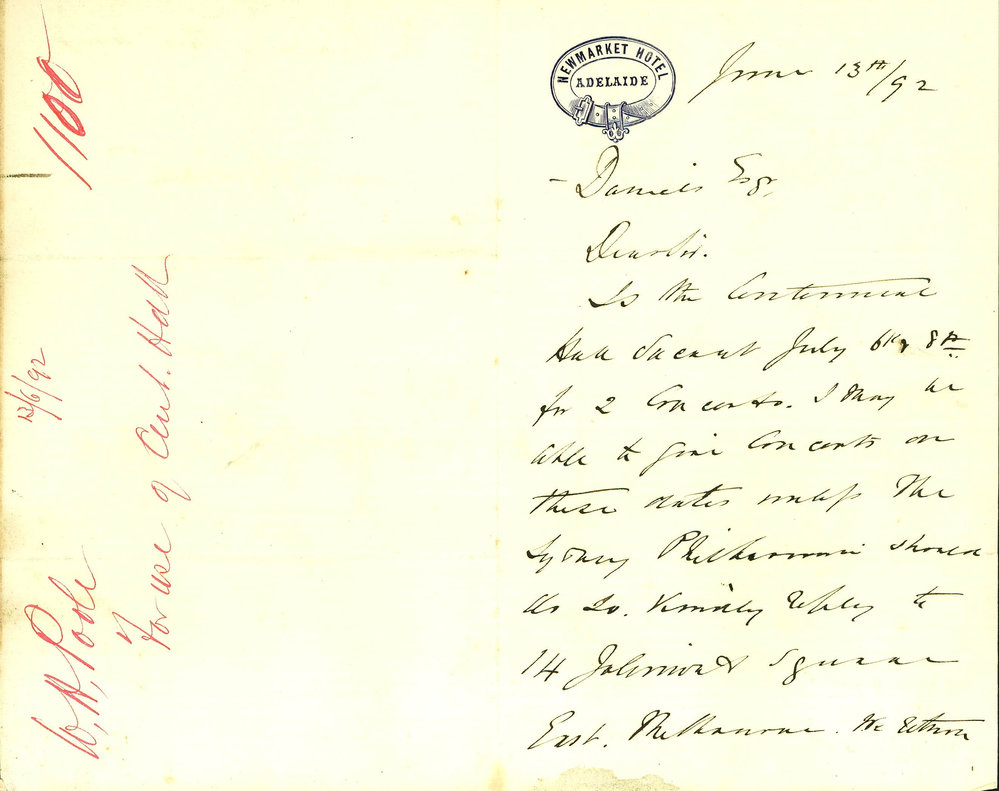 1100
13/6/92
W, H, Poole
For use of Cent. Hall
NEWMARKET HOTEL
ADELAIDE
June 13th/92
- Daniels Esqr,
Dear Sir.
Is the Centennial
Hall Vacant July 6th & 8th
for 2 Concerts. I may be
able to give Concerts on
these dates unless The
Sydney Philharmonic should
do so. Kindly reply to
14 Jolimont Square
East. Melbourne. We return